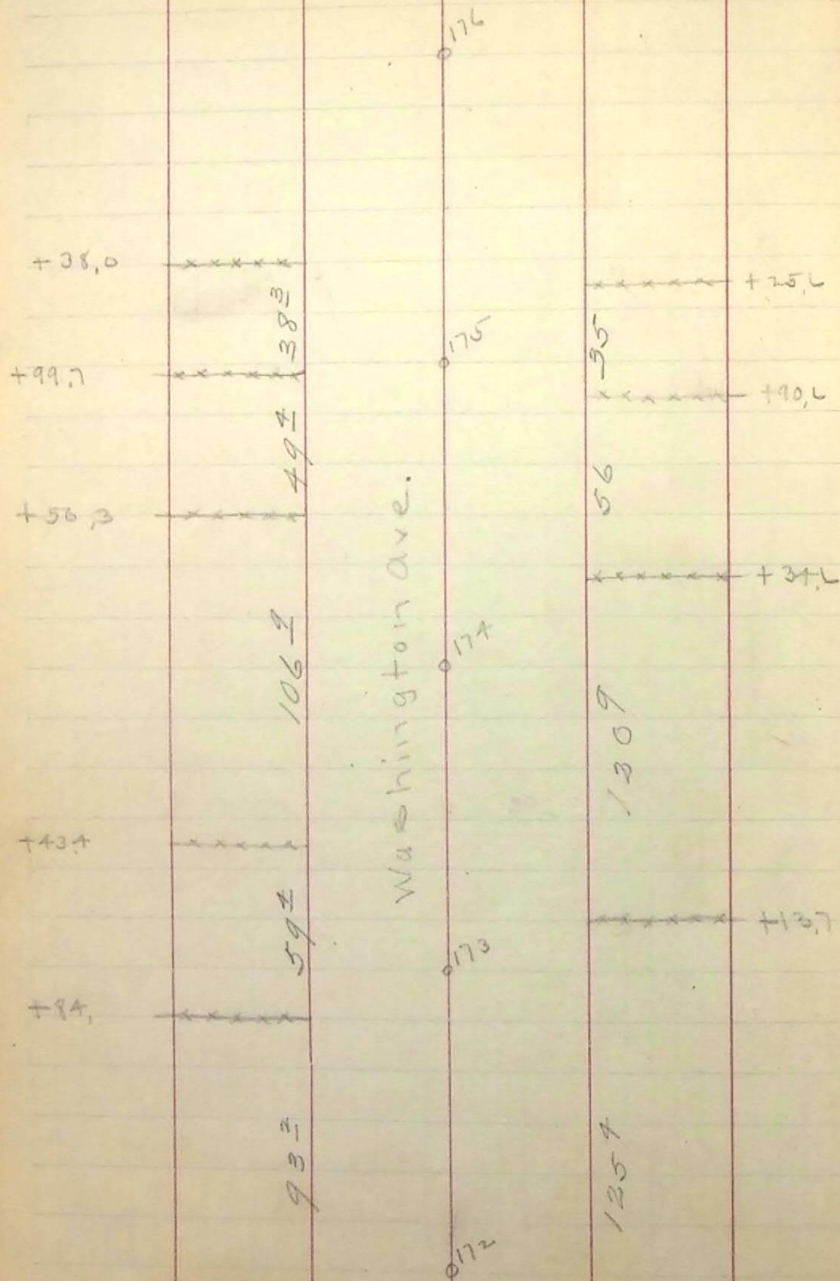 176
+38,0
+25,6
38 3
175
35
+99,7
+90,6
49 4
56
+50,3
+34,6
Washington Ave.
106 9
174
120 9
+43,4
+13,7
59 4
173
+84,
93 2
125 4
172